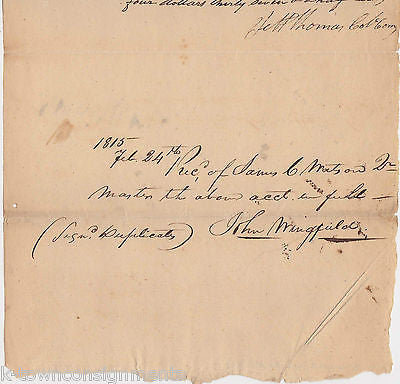 four dollars thirty seven & a half
Jett Thomas Col. Com
1815
Feb 24th Rec'd of James C Watson Qr
Master the above acct in full —
(Sign'd Duplicates) John Wingfield
k-townconsignments